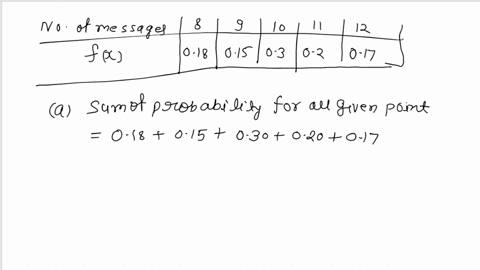 No. of messages 8 9 10 11 12
f(x) 0.18 0.15 0.3 0.2 0.17
(a) Sum of probability for all given point
= 0.18 + 0.15 + 0.30 + 0.20 + 0.17